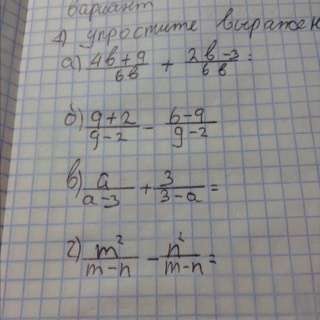 вариант
1) упростите выражен
а) (4в+9)/(6в) + (2в-3)/(6в) =
б) (9+2)/(9-2) - (6-9)/(9-2)
в) a/(a-3) + 3/(3-a) =
г) m²/(m-n) - n²/(m-n) =